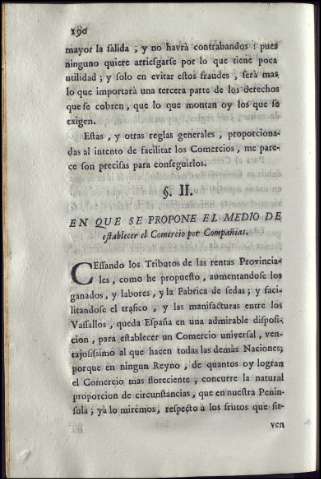 190
mayor la salida ; y no havrà contrabandos : pues
ninguno quiere arriesgarse por lo que tiene poca
utilidad ; y solo en evitar estos fraudes , serà mas
lo que importarà una tercera parte de los derechos
que se cobren , que lo que montan oy los que se
exigen.
Estas , y otras reglas generales , proporciona-
das al intento de facilitar los Comercios , me pare-
ce son precisas para conseguirlos.
§. II.
EN QUE SE PROPONE EL MEDIO DE
establecer el Comercio por Compañias.
CEssando los Tributos de las rentas Provincia-
les , como he propuesto , aumentandose los
ganados , y labores , y la Fabrica de sedas ; y faci-
litandose el trafico , y las manifacturas entre los
Vassallos , queda España en una admirable disposi-
cion , para establecer un Comercio universal , ven-
tajosissimo al que hacen todas las demàs Naciones,
porque en ningun Reyno , de quantos oy logran
el Comercio mas floreciente , concurre la natural
proporcion de circunstancias, que en nuestra Penin-
sula ; yà lo mirèmos, respecto à los frutos que sir-
ven